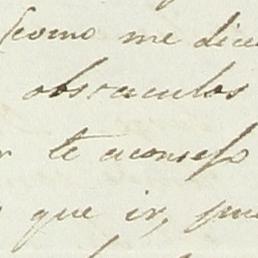 como me dice
obstaculos
te aconsejo
que ir, pue